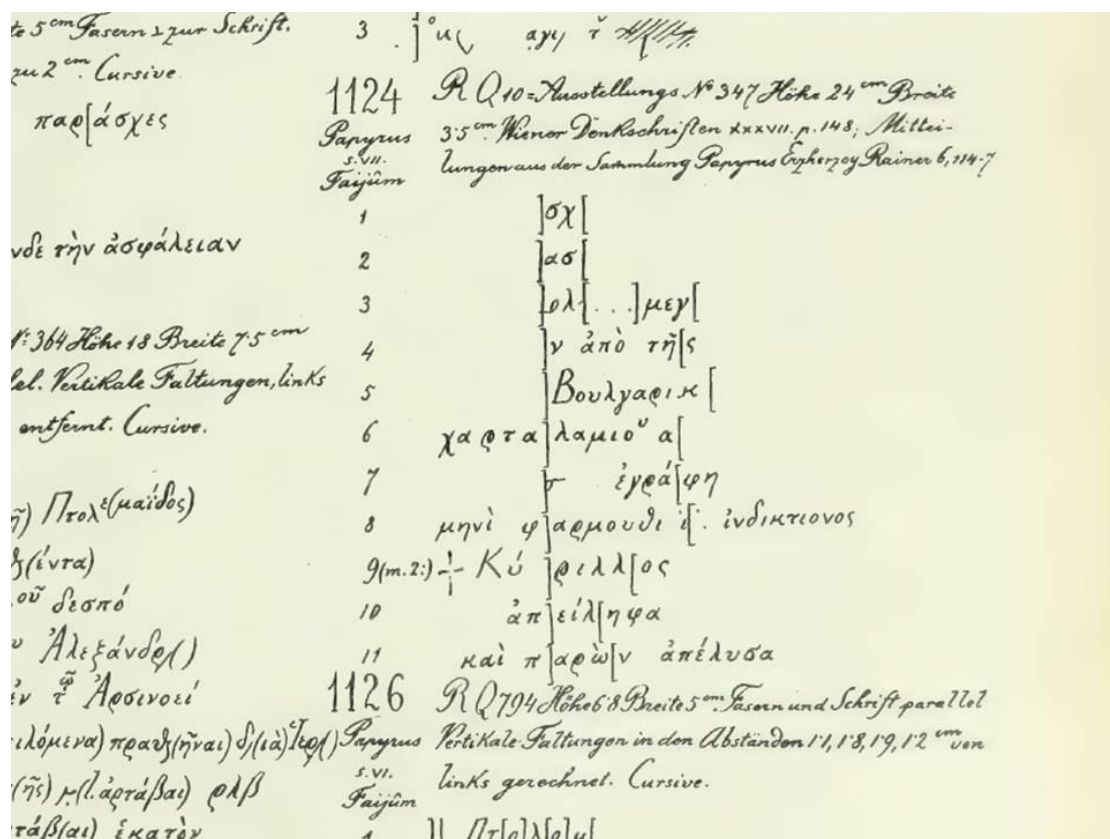 te 5 cm Fasern ⊥ zur Schrift.
zu 2 cm. Cursive
παρ[άσχες
νδε τὴν ἀσφάλειαν
N: 364 Höhe 18 Breite 7·5 cm
lel. Vertikale Faltungen, links
entfernt. Cursive.
ῆ) Πτολε(μαΐδος)
(έντα)
οῦ δεσπό
υ Ἀλεξάνδρ()
ἐν τῷ Ἀρσινοεί
ιλόμενα) πραθ(ῆναι) δ(ιὰ) Ἱερ()
(ῆς) μ(l. ἀρτάβαι) ρλβ
τάβ(αι) ἑκατὸν
3
1124 R Q 10 = Ausstellungs No 347 Höhe 24 cm Breite
Papyrus 3·5 cm. Wiener Denkschriften XXXVII. p. 148; Mittei-
s. VII. lungen aus der Sammlung Papyrus Erzherzog Rainer 6, 114-7
Faijûm
1 ]σχ[
2 ]ασ[
3 ]ολ[...]μεγ[
4 ]ν ἀπὸ τῆ[ς
5 ]Βουλγαρικ[
6 χαρτα]λαμιου α[
7 ]τ ἐγρά[φη
8 μηνὶ φ]αρμουθι ι[. ἰνδικτιονος
9 (m. 2:) + Κύ]ριλλ[ος
10 ἀπ]είλ[ηφα
11 καὶ π]αρὼ[ν ἀπέλυσα
1126 R Q 794 Höhe 6·8 Breite 5 cm. Fasern und Schrift parallel
Papyrus Vertikale Faltungen in den Abständen 1·1, 1·8, 1·9, 1·2 cm von
s. VI. links gerechnet. Cursive.
Faijûm
1 ]]. Πτ[ο]λ[ο]μ[